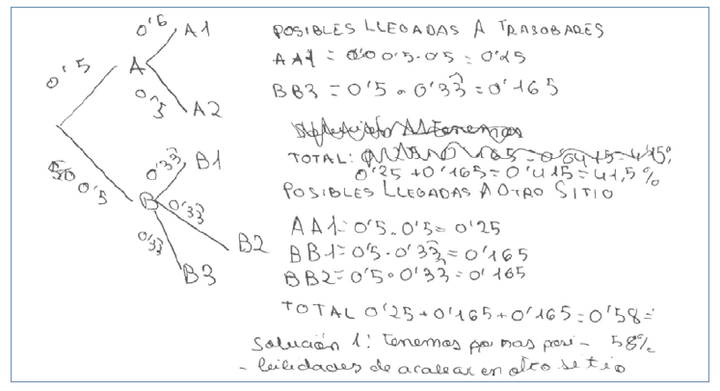 0'6 A1
0'5 A
0'5 A2
0'33 B1
0'5 B 0'33
B2
0'33
B3
POSIBLES LLEGADAS A TRASOBARES
AA1 = 0'5·0'5 = 0'25
BB3 = 0'5 · 0'33 = 0'165
TOTAL:
0'25 + 0'165 = 0'415 = 41,5 %
POSIBLES LLEGADAS A OTRO SITIO
AA1 = 0'5 · 0'5 = 0'25
BB1 = 0'5 · 0'33 = 0'165
BB2 = 0'5 · 0'33 = 0'165
TOTAL 0'25 + 0'165 + 0'165 = 0'58 =
Solución 1: tenemos mas posi- 58%
- bilidades de acabar en otro sitio